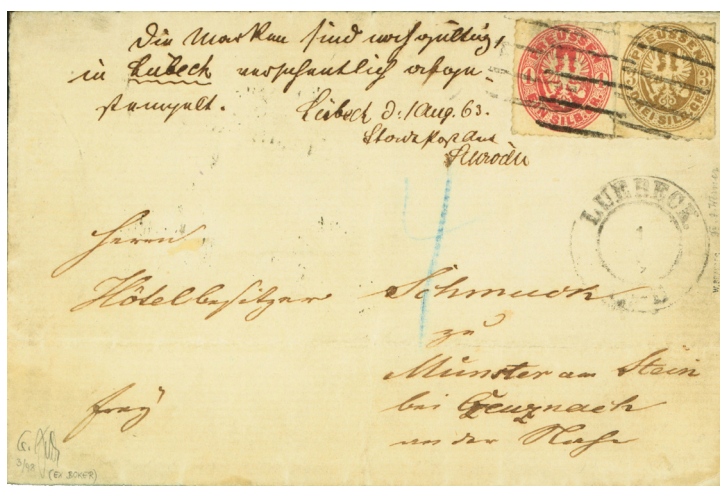 Die Marken sind noch gültig,
in Lübeck versehentlich abge-
stempelt.
Lübeck d: 1 Aug. 63.
Stadt Post Amt
PREUSSEN
EIN SILB. GR.
PREUSSEN
DREI SILB. GR.
LUEBECK
1
7
4
Herrn
Hôtelbesitzer Schmuck
zu
Münster am Stein
frey
bei Creuznach
an der Nahe
3/98
(EX BOKER)